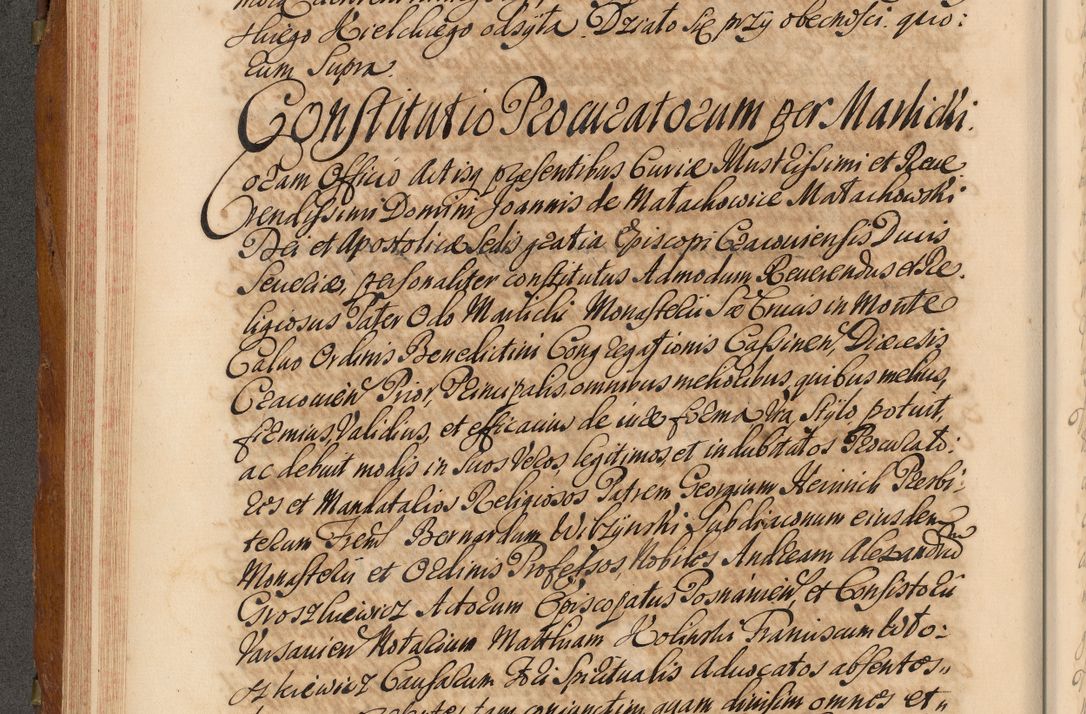 tłuego Kielckiego odsyła. Dziato się przy obecności. quo:
rum Supra.
Constitutio Procuratorum per Marlicki.
Coram Officio Actisq præsentibus Curiæ Illustrissimi et Reve
rendissimi Domini Joannis de Małachowice Małachowski
Dei et Apostolicæ Sedis gratia Episcopi Cracoviensis Ducis
Severiæ, personaliter constitutus Admodum Reverendus et Re
ligiosus Pater Odo Marlicki Monasterii Sæ Crucis in Monte
Calvo Ordinis Benedictini Congregationis Cassinen, Diæcesis
Cracovien Prior, Principalis, omnibus melioribus, quibus melius,
firmius, Validius, et efficacius de iure forma Via Stylo potuit,
ac debuit modis in suos Veros, legitimos, et indubitatos Procurato:
res et Mandatarios Religiosos Patrem Georgium Heinrich Presbi:
terum Frem Bernardum Wilzynski Subdiaconum eiusdem
Monasterii et Ordinis Professos, Nobiles Andream Alexandrum
Groszkiewicz Actorum Episcopatus Posnanien et Consistorii
Varsavien Notarium Matthiam Kolinski Franciscum Wito:
szkiewicz Causarum Fori Spiritualis Advocatos absentes
tam coniunctim quam divisim omnes et